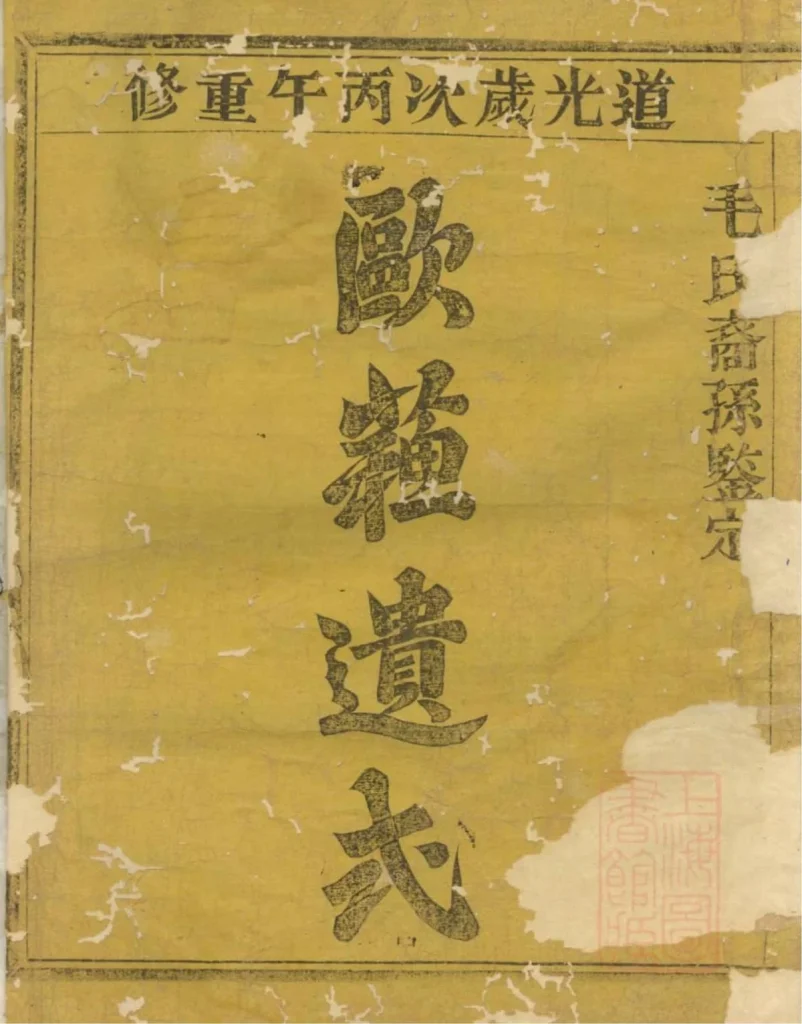 道光歲次丙午重修
毛氏裔孫鑒定
歐蘓遺式
上海圖書館藏